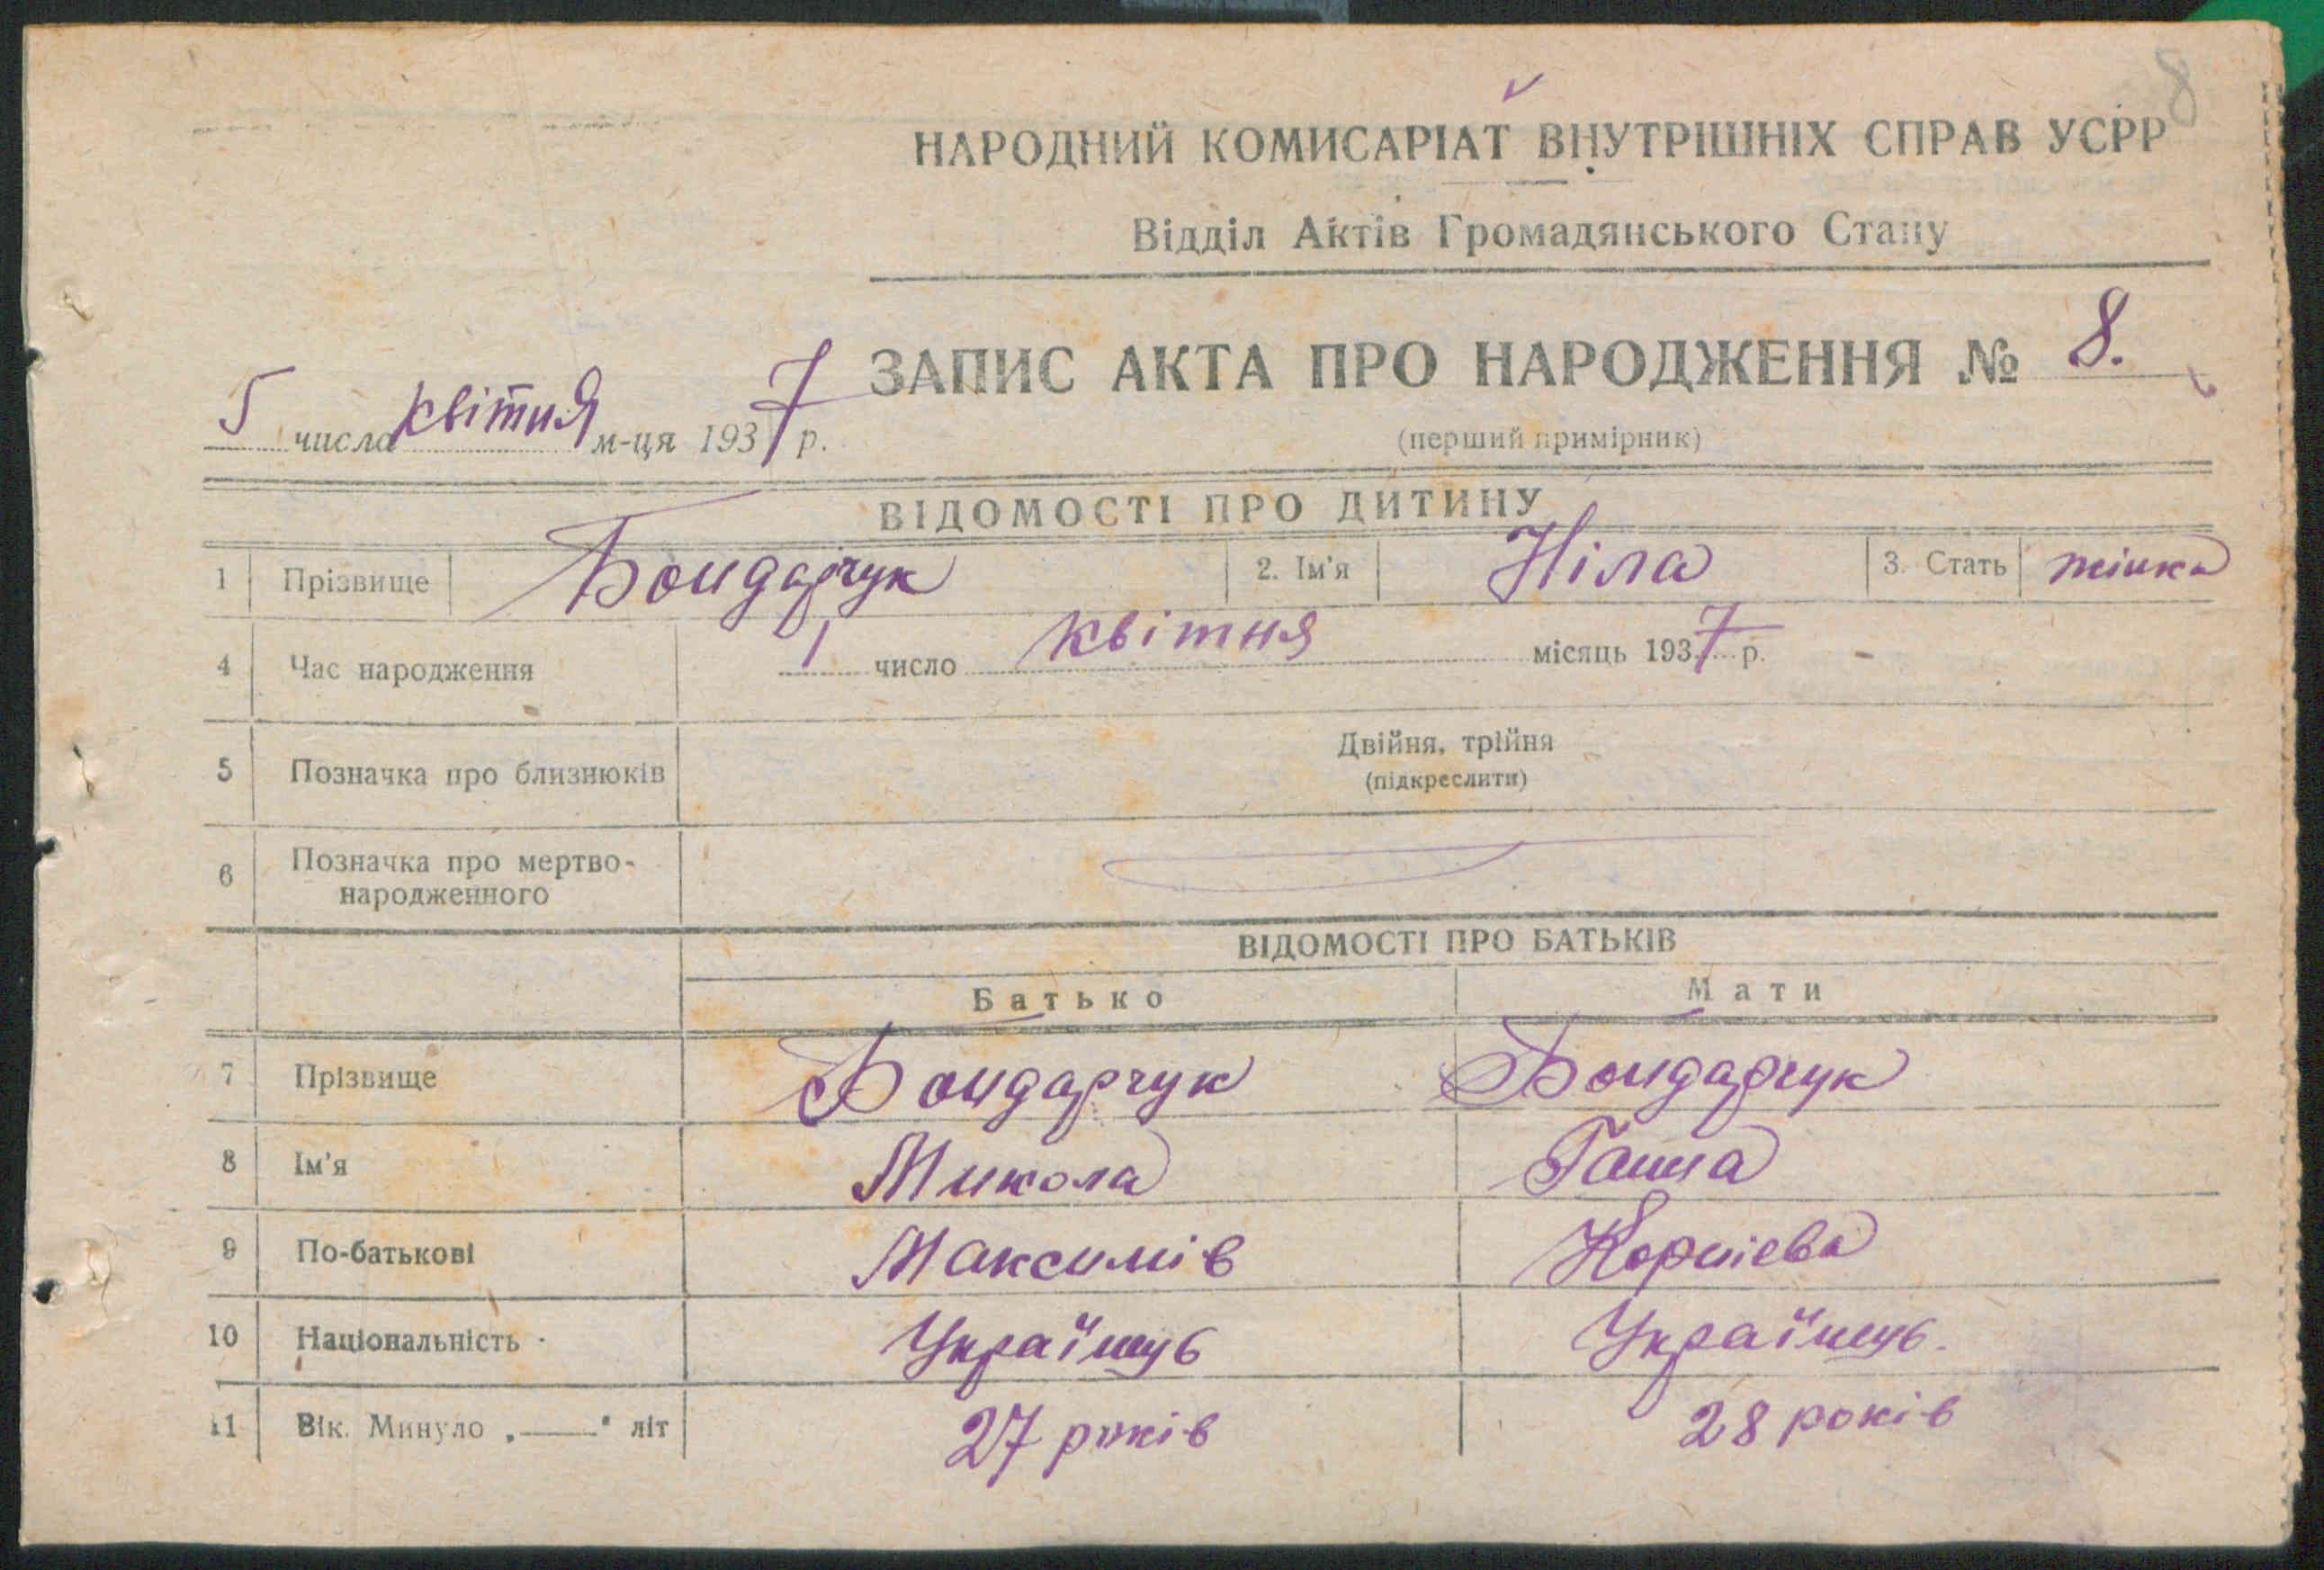 8
НАРОДНИЙ КОМИСАРІАТ ВНУТРІШНІХ СПРАВ УСРР
Відділ Актів Громадянського Стану
ЗАПИС АКТА ПРО НАРОДЖЕННЯ № 8.
5 числа квітня м-ця 1937 р.
(перший примірник)
ВІДОМОСТІ ПРО ДИТИНУ
1 Прізвище Бондарчук 2. Ім'я Ніла 3. Стать жінка
4 Час народження 1 число квітня місяць 1937 р.
Двійня, трійня
5 Позначка про близнюків
(підкреслити)
6 Позначка про мертво-
народженного
ВІДОМОСТІ ПРО БАТЬКІВ
Батько Мати
7 Прізвище Бондарчук Бондарчук
8 Ім'я Микола Ганна
9 По-батькові Максимів Корніева
10 Національність Українць Українць.
11 Вік. Минуло „——" літ 27 років 28 років